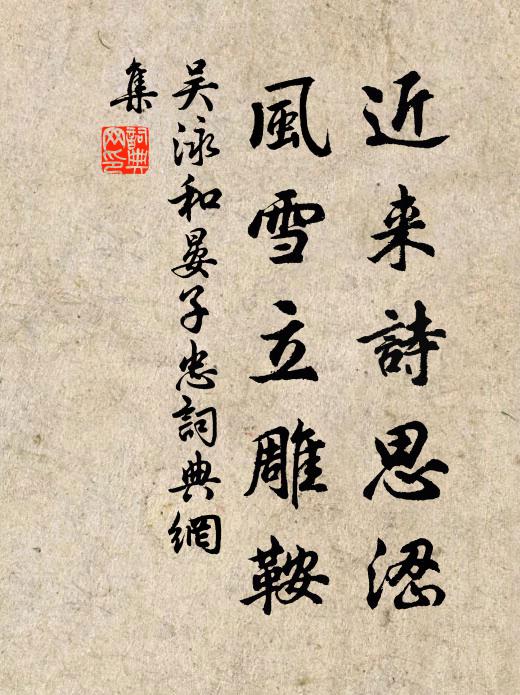 近来詩思涩
風雪立雕鞍
吴泳和晏子忠詞典網
集
詞典网印